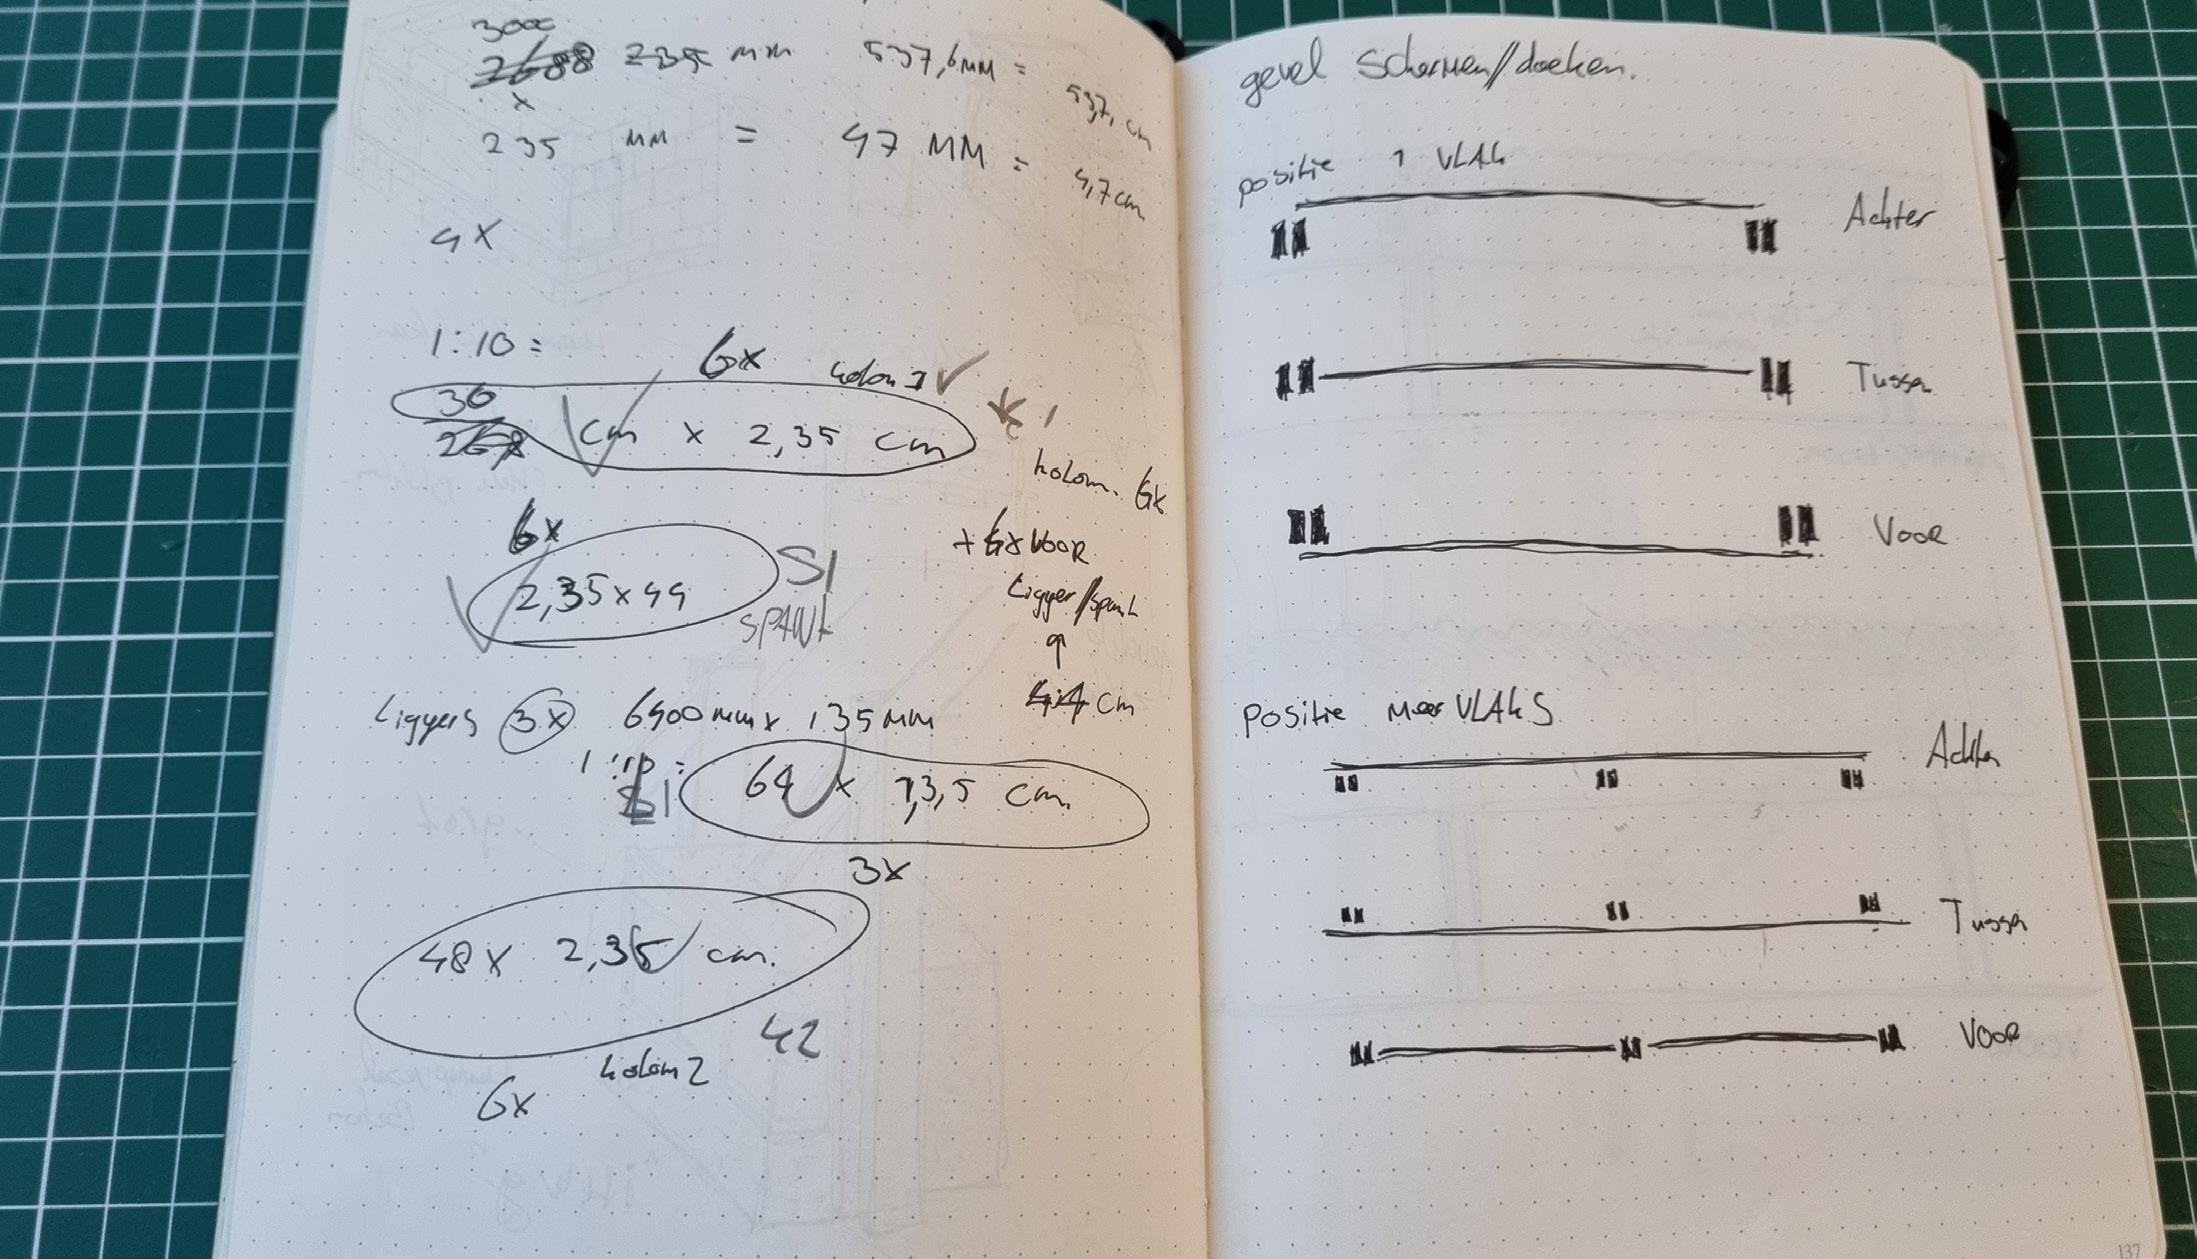 3000
2688 235 mm 537,6 MM =
53,7, cm
x
235 MM = 47 MM =
4,7 cm
4x
1:10 =
6x kolom 1
30
268 cm x 2,35 cm
kolom. 6x
6x
+ 6x VOOR
2,35 x 44
S1
SPANT
Ligger/spant
cm
Liggers 3x 6400 mm x 135 MM
1:10 =
S1
64 x 13,5 cm.
3x
48 x 2,35 cm.
42
kolom 2
6x
gevel Schermen/doeken.
positie 1 VLAK
Achter
Tussen
VOOR
Positie meer VLAKS
Achter
Tussen
VOOR
137